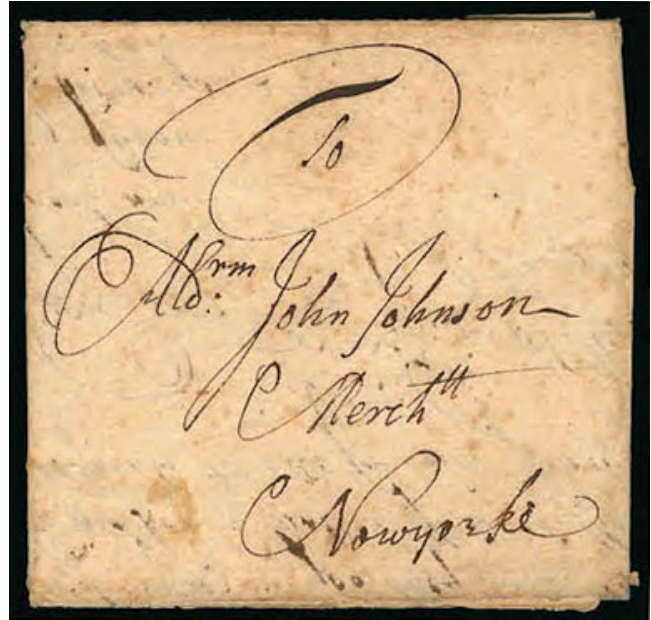 To
Aldrm: John Johnson
Mercht
Newyorke